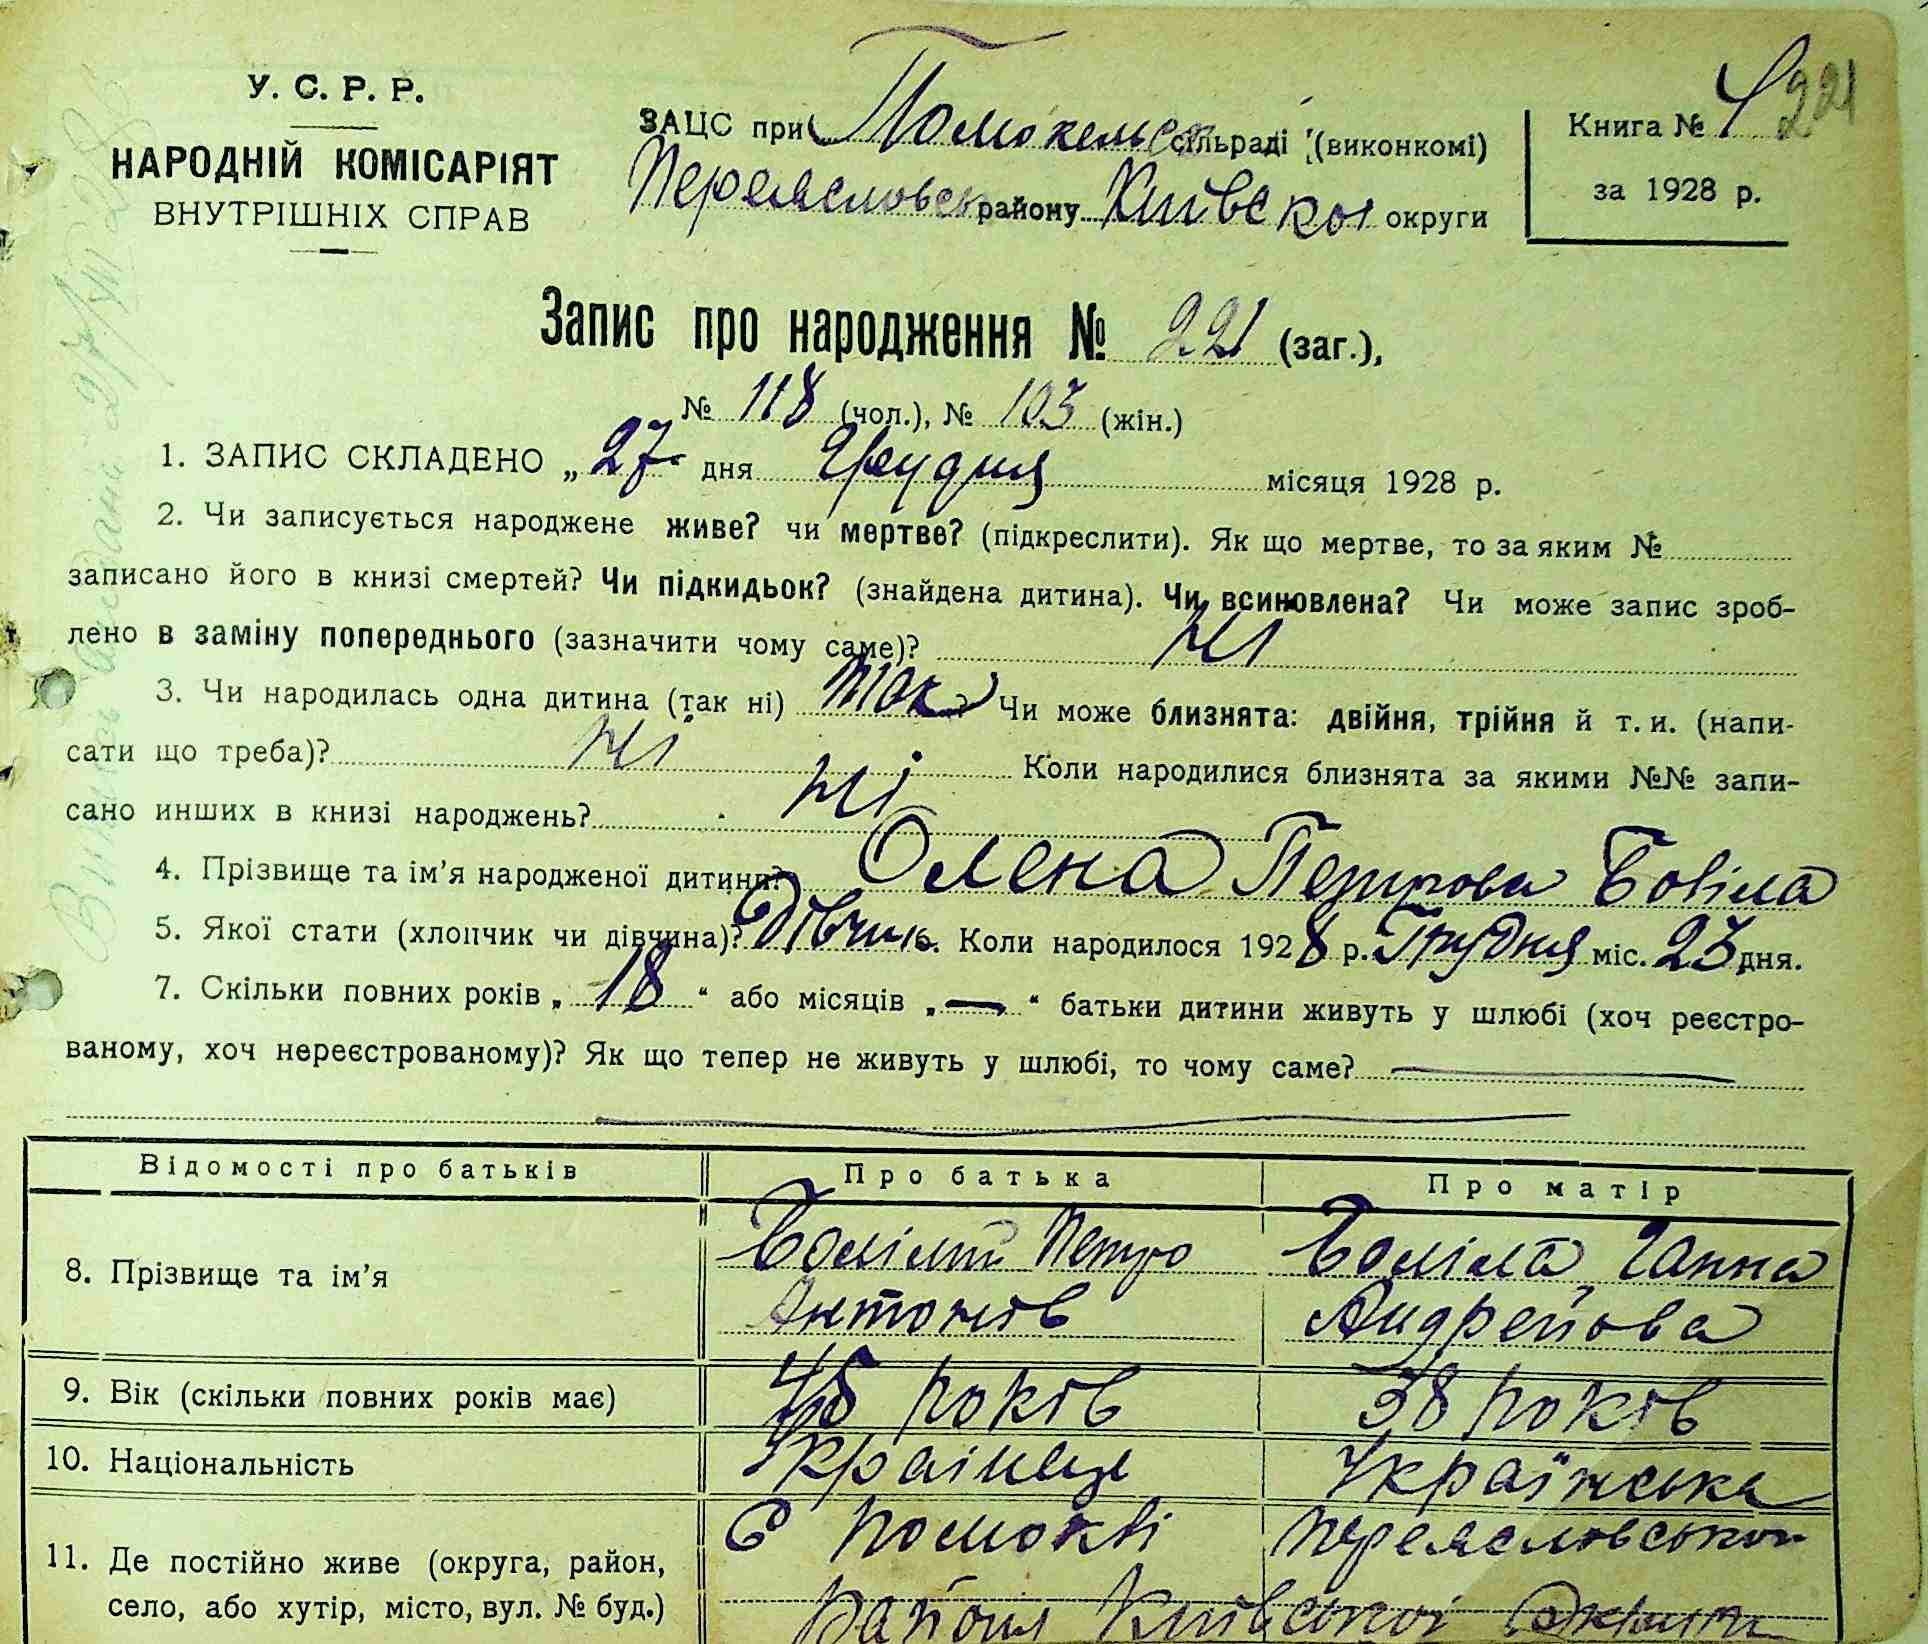 У. С. Р. Р.
НАРОДНІЙ КОМІСАРІЯТ
ВНУТРІШНІХ СПРАВ
ЗАЦС при Помокельск сільраді (виконкомі)
Переясловськ району Київської округи
Книга № 4 221
за 1928 р.
Запис про народження № 221 (заг.),
№ 118 (чол.), № 103 (жін.)
1. ЗАПИС СКЛАДЕНО „ 27 дня Грудня місяця 1928 р.
2. Чи записується народжене живе? чи мертве? (підкреслити). Як що мертве, то за яким №
записано його в книзі смертей? Чи підкидьок? (знайдена дитина). Чи всиновлена? Чи може запис зроб-
лено в заміну попереднього (зазначити чому саме)? Ні
3. Чи народилась одна дитина (так ні) так? Чи може близнята: двійня, трійня й т. и. (напи-
сати що треба)? Ні Коли народилися близнята за якими №№ запи-
сано инших в книзі народжень? Ні
4. Прізвище та ім'я народженої дитини? Олена Петрова Боліла
5. Якої стати (хлопчик чи дівчина)? Дівчин 6. Коли народилося 1928 р. Грудня міс. 23 дня.
7. Скільки повних років „ 18 “ або місяців „ — “ батьки дитини живуть у шлюбі (хоч реєстро-
ваному, хоч нереєстрованому)? Як що тепер не живуть у шлюбі, то чому саме? —
Відомості про батьків Про батька Про матір
8. Прізвище та ім'я Болілий Петро Боліла Ганна
Антонів Андрейова
9. Вік (скільки повних років має) 45 років 38 років
10. Національність Українец Українська
11. Де постійно живе (округа, район, С Помоклі Переясловського
село, або хутір, місто, вул. № буд.) Району Київської Округи